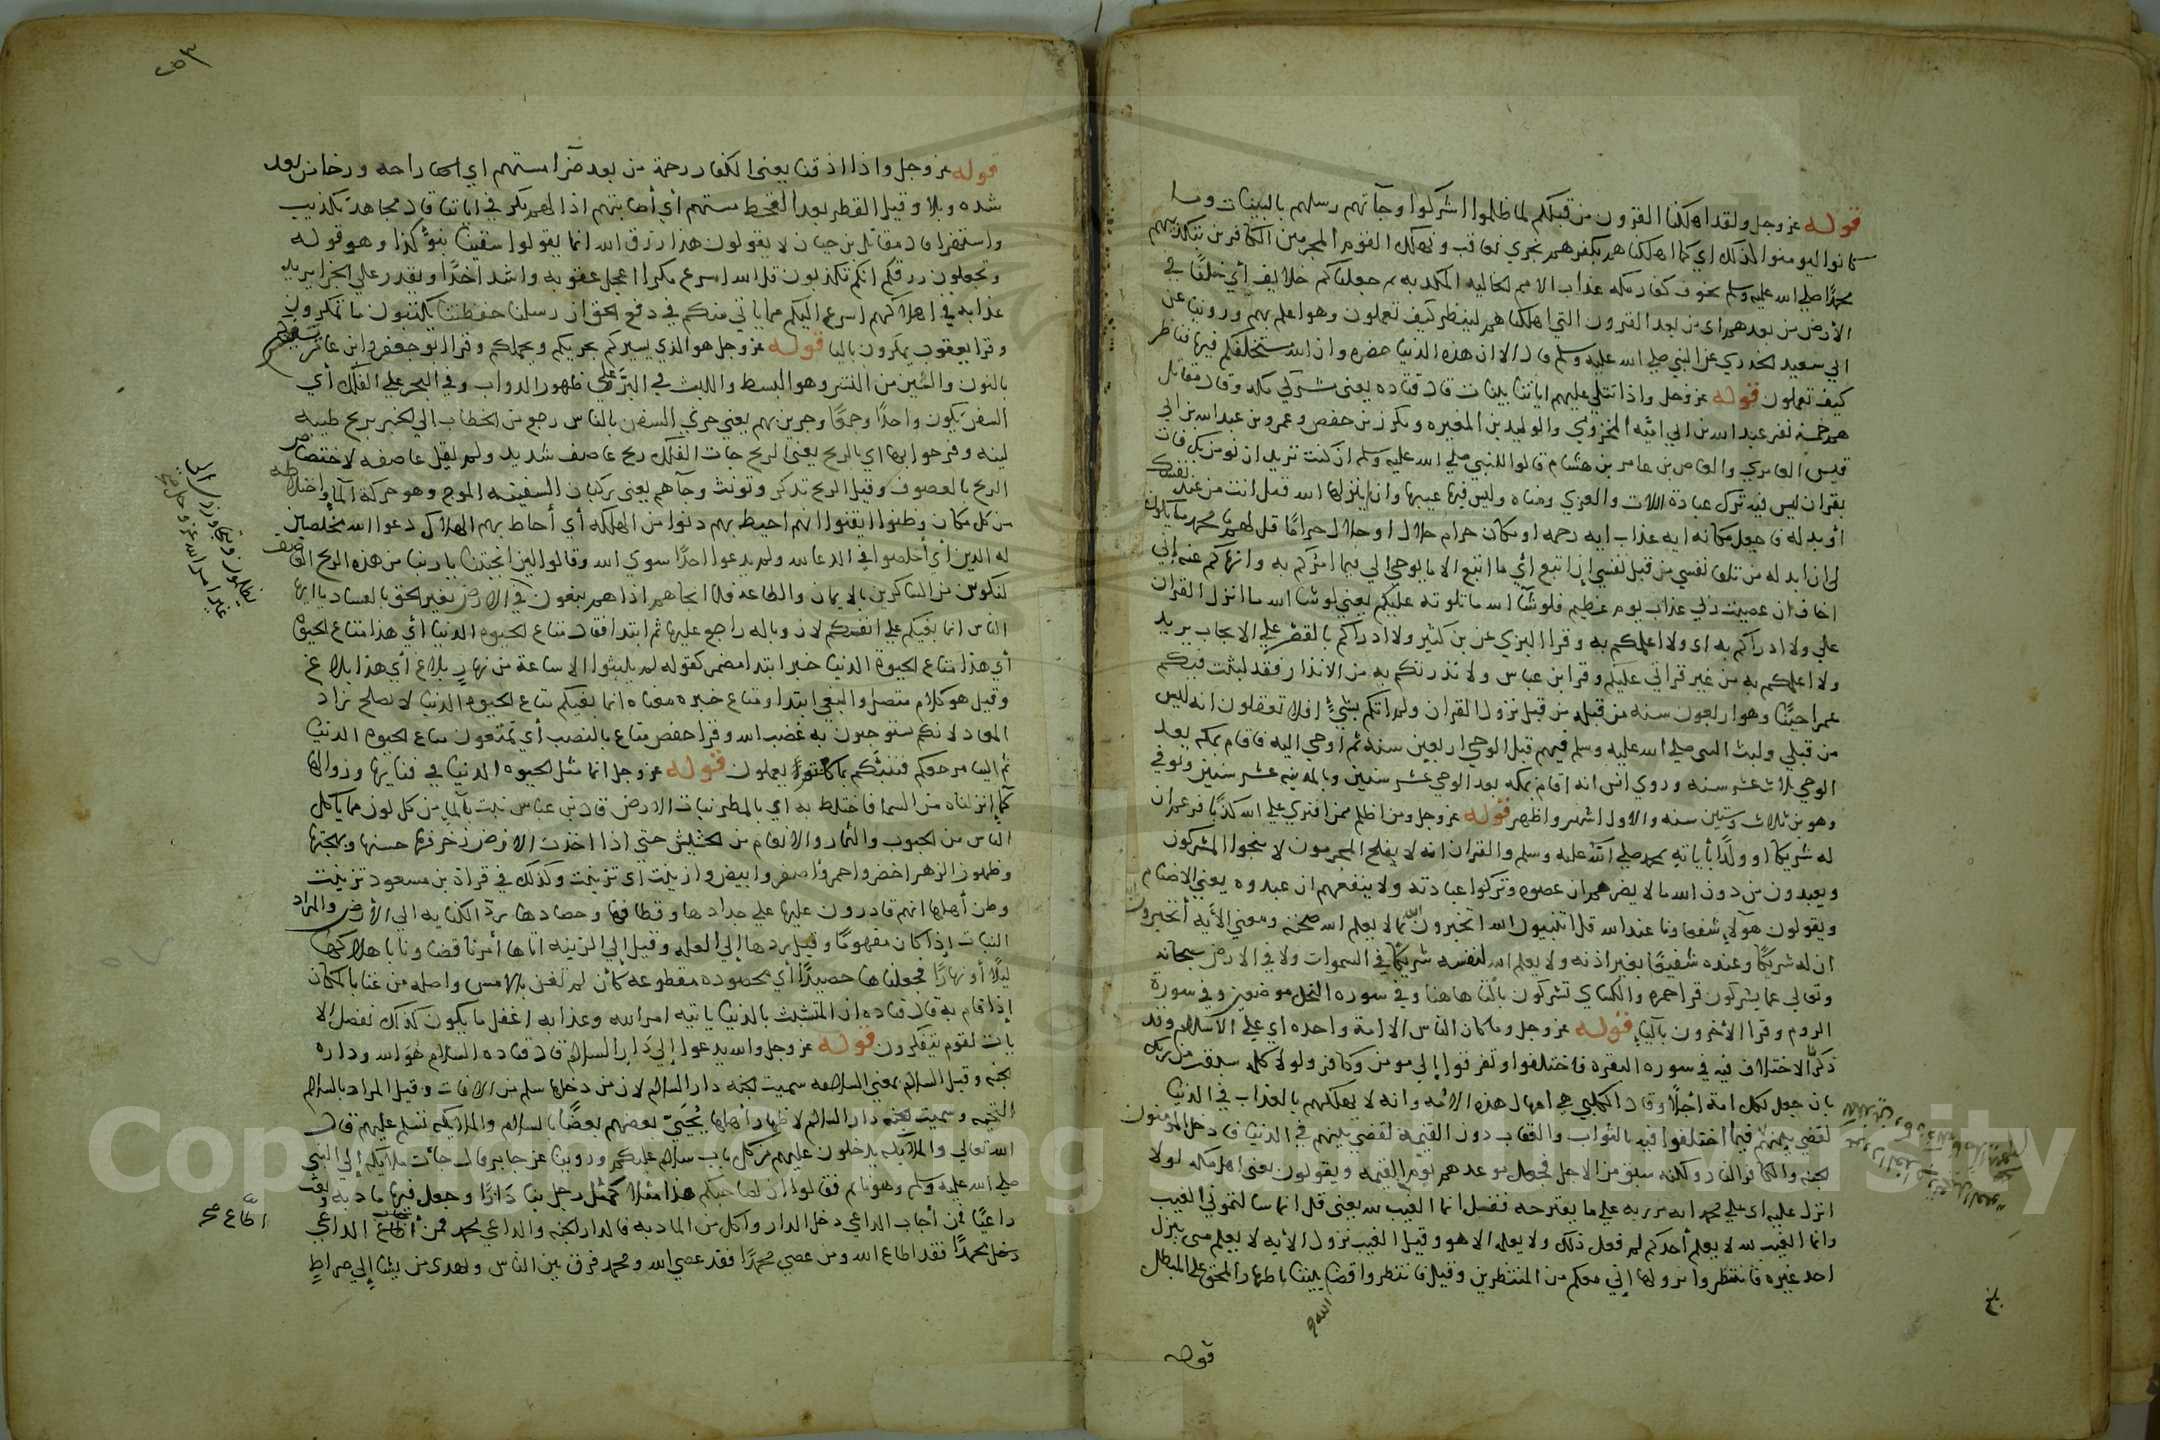 قوله عز وجل ولقد اهلكنا القرون من قبلكم لما ظلموا اشركوا وجآتهم رسلهم بالبينات وما
كانوا ليومنوا كذلك اي كما اهلكناهم بكفرهم نجزي نعاقب ونهلك القوم المجرمين الكافرين بتكذيبهم
محمدًا صلي الله عليه وسلم يخوف كفار مكه عذاب الامم الخاليه المكذبه ثم جعلناكم خلايف أي خلفًا في
الأرض من بعدهم اي من بعد القرون التي اهلكناهم لينظر كيف تعملون وهو اعلم بهم وروينا عن
ابي سعيد الخدري عن النبي صلي الله عليه وسلم قال الا ان هذه الدنيا خضره وان الله مستخلفكم فيها فناظر
كيف تعملون قوله عز وجل واذا تتلي عليهم اياتنا بينات قال قتاده يعني مشركي مكه وقال مقاتل
هم خمسة نفر عبد الله بن ابي اميه المخزومي والوليد بن المغيره ومكرز بن حفص وعمرو بن عبد الله بن ابي
قيس العامري والعاص بن عامر بن هشام قالوا للنبي صلي الله عليه وسلم ان كنت تريد ان نومن بك فات
بقران ليس فيه ترك عبادة اللات والعزي ومناه وليس فيها عيبها وان لم ينزلها الله فقل انت من عند نفسك
أو بدله فاجعل مكانه ايه عذاب ايه رحمه او مكان حرام حلالا او حلال حرامًا قل لهم يا محمد ما يكون
لي ان ابدله من تلقا نفسي من قبل نفسي ان اتبع أي ما اتبع الا ما يوحي الي فيما امركم به وانهاكم عنه إني
اخاف ان عصيت ربي عذاب يوم عظيم قل لو شآ الله ما تلوته عليكم يعني لو شا الله ما انزل القران
علي ولا ادراكم به اي ولا اعلمكم به وقرا البزي عن بن كثير ولا ادراكم بالقصر علي الايجاب يريد
ولا اعلمكم به من غير قراتي عليكم وقرا بن عباس ولا نذرتكم به من الانذار فقد لبثت فيكم
عمرا حينًا وهو اربعون سنه من قبله من قبل نزول القران ولم اتكم بشيءٍ افلا تعقلون انه ليس
من قبلي ولبث النبي صلي الله عليه وسلم فيهم قبل الوحي اربعين سنه ثم اوحي اليه فاقام بمكه بعد
الوحي ثلاث عشر سنه وروي انس انه اقام بمكه بعد الوحي عشر سنين وبالمدينه عشر سنين وتوفي
وهو بن ثلاث وستين سنه والاول اشهر واظهر قوله عز وجل ومن اظلم ممن افتري علي الله كذبًا فزعم ان
له شريكا او ولدًا أو كذب بأياته بمحمد صلي الله عليه وسلم والقران انه لا يفلح المجرمون لا ينجوا المشركون
ويعبدون من دون الله ما لا يضرهم ان عصوه وتركوا عبادته ولا ينفعهم ان عبدوه يعني الاصنام
ويقولون هولآء شفعاونا عند الله قل اتنبيون الله اتخبرون الله بما لا يعلم الله صحته ومعني الأيه أتخبرون
ان له شريكًا وعنده شفيعًا بغير اذنه ولا يعلم الله لنفسه شريكًا في السموات ولا في الارض سبحانه
وتعالي عما يشركون قرا حمزه والكساي تشركون بالتا هاهنا وفي سوره النحل موضعين وفي سورة
الروم وقرا الأخرون بآليا قوله عز وجل وما كان الناس الا امة واحده اي علي الاسلام وقد
ذكرنا الاختلاف فيه في سوره البقره فاختلفوا وتفرقوا إلي مومن وكافر ولولا كلمه سبقت من ربك
بان جعل لكل امة اجلًا وقال الكلبي هي امهال هذه الامه وانه لا يهلكهم بالعذاب في الدنيا
لقضي بينهم فيما اختلفوا فيه بالثواب والعقاب دون القيمة لقضي بينهم في الدنيا فادخل المومنون
لجنه والكافر النار ولكنه سبق من الاجل فجعل موعدهم يوم القيمه ويقولون يعني اهل مكه لولا
انزل عليه اي علي محمد ايه من ربه علي ما يقترحه فقل انما الغيب لله يعني قل انما سالتموني الغيب
وانما الغيب لله لا يعلم أحدكم لم فعل ذلك ولا يعلمه الا هو وقيل الغيب نزول الأيه لا يعلم متي ينزل
احد غيره فانتظروا نزولها إني معكم من المنتظرين وقيل فانتظروا قضا الله بيننا باظهار المحق علي المبطل
قوله
قوله عز وجل واذا اذقنا يعني الكفار رحمة من بعد ضرآ مستهم اي راحه ورخا من بعد
شده وبلا وقيل القطر بعد القحط مستهم أي أصابتهم اذا لهم مكر في اياتنا قال مجاهد تكذيب
واستهزا قال مقاتل بن حيان لا يقولون هذا رزق الله انما يقولوا سقينا بنوء كذا وهو قوله
وتجعلون رزقكم انكم تكذبون قل الله اسرع مكرا اعجل عقوبه واشد اخذًا واقدر علي الجزا يريد
عذابه في اهلاكهم اسرع اليكم مما ياتي منكم في دفع الحق ان رسلنا حفظتنا يكتبون ما تمكرون
وقرا يعقوب يمكرون باليا قوله عز وجل هو الذي يسيركم يجريكم ويحملكم وقرا ابو جعفر وابن عامر ينشركم
بالنون والشين من النشر وهو البسط والبث في البرّ علي ظهور الدواب وفي البحر علي الفلك أي
السفن تكون واحدًا وجمعًا وجرين بهم يعني جري السفن بالناس رجع من الخطاب الي الخبر بريح طيبه
لينه وفرحوا بها اي بالريح يعني الريح جات الفلك ريح عاصف شديد ولم يقل عاصفه لاختصاص
الريح بالعصوف وقيل الريح تذكر وتونث وجآهم يعني ركبان السفينه الموج وهو حركة المآ واختلاطه
من كل مكان وظنوا ايقنوا انهم احيط بهم دنوا من الهلكه أي أحاط بهم الهلاك دعوا الله مخلصين
له الدين أي أخلصوا في الدعا لله ولم يدعوا احدًا سوي الله وقالوا لين انجيتنا يا ربنا من هذه الريح العاصف
لنكونن من الشاكرين بالايمان والطاعه فلما انجاهم اذا هم يبغون في الارض بغير الحق بالفساد يا ايها
الناس انما بغيكم علي انفسكم لان وباله راجع عليها ثم ابتدا فقال متاع الحيوة الدنيا أي هذا متاع الحيوة
أي هذا متاع الحيوة الدنيا خبر ابتدا مضمر كقوله لم يلبثوا الا ساعة من نهارٍ بلاغ أي هذا بلاغ
وقيل هو كلام متصل والبغي ابتدا ومتاع خبره معناه انما بغيكم متاع الحيوة الدنيا لا يصلح زاد
المعاد لانكم ستوجبون به غضب الله وقرا حفص متاع بالنصب أي تمتعون متاع الحيوة الدنيا
ثم الينا مرجعكم فننبئكم بما كنتم تعملون قوله عز وجل انما مثل الحيوه الدنيا في فنايها وزوالها
كمآ انزلناه من السما فاختلط به اي بالمطر نبات الارض قال بن عباس نبت بالمآ من كل لون مما ياكل
الناس من الحبوب والثمار والانعام من الحشيش حتي اذا اخذت الارض زخرفها حسنها وبهجتها
وظهور الزهر اخضر واحمر واصفر وابيض وازينت اي تزينت وكذلك في قراة بن مسعود تزينت
وظن أهلها انهم قادرون عليها علي جدادها وقطافها وحصادها ردّ الكنايه الي الأرض والمراد
النبات إذ كان مفهومًا وقيل ردها إلي الغلة وقيل إلي الزينه اتاها أمرنا قضاونا باهلاكها
ليلًا أو نهارًا فجعلناها حصيدًا أي محصوده مقطوعه كأن لم تغن بالامس واصله من غنا بالمكان
إذا قام به قال قتاده ان المتشبث بالدنيا ياتيه امر الله وعذابه اغفل ما يكون كذلك نفصل الا
يات لقوم يتفكرون قوله عز وجل والله يدعوا إلي دار السلام قال قتاده السلام هو الله وداره
لجنه وقيل السلام بمعني السلامه سميت لجنه دار السلام لان من دخلها سلم من الافات وقيل المراد بالسلام
التحيه وسميت لجنه دار السلام لان اهلها يُحَيي بعضهم بعضًا بالسلام والملايكه تسلم عليهم قال
الله تعالي والملايكه يدخلون عليهم من كل باب سلام عليكم وروينا عن جابر قال جاءت ملايكه إلي النبي
صلي الله عليه وسلم وهو نايم فقالوا ان لصاحبكم هذا مثلا كمثل رجل بنا دارًا وجعل فيها مادبه وبعث
داعيًا فمن أجاب الداعي دخل الدار واكل من المادبه فالدار لجنه والداعي محمد فمن أطاع
محمدًا فقد اطاع الله ومن عصي محمدًا فقد عصي الله ومحمد فرق بين الناس ويهدي من يشا إلي صراطٍ
اطاع صح
Copyright © King Saud University